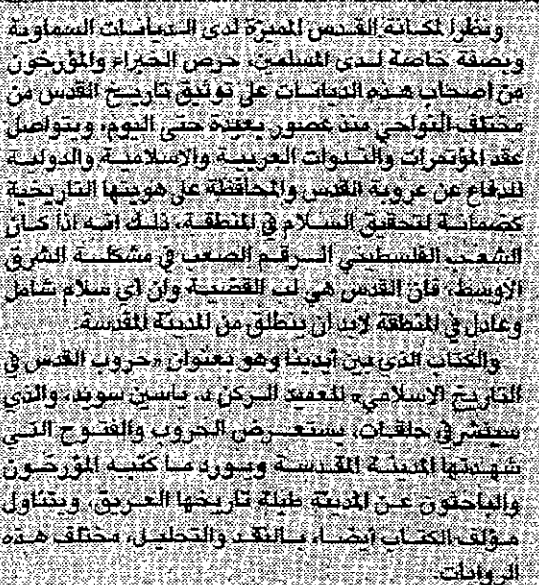 ونظرا لمكانة القدس المميزة لدى الديانات السماوية
وبصفة خاصة لدى المسلمين، حرص الخبراء والمؤرخون
من اصحاب هذه الديانات على توثيق تاريخ القدس من
مختلف النواحي منذ عصور بعيدة حتى اليوم، ويتواصل
عقد المؤتمرات والندوات العربية والاسلامية والدولية
للدفاع عن عروبة القدس والمحافظة على هويتها التاريخية
كضمانة لتحقيق السلام في المنطقة، ذلك انه اذا كان
الشعب الفلسطيني الرقم الصعب في مشكلة الشرق
الأوسط، فان القدس هي لب القضية وان اي سلام شامل
وعادل في المنطقة لابد ان ينطلق من المدينة المقدسة.
والكتاب الذي بين أيدينا وهو بعنوان «حروب القدس في
التاريخ الاسلامي» للعميد الركن د. ياسين سويد، والذي
سينشر في حلقات، يستعرض الحروب والفتوح التي
شهدتها المدينة المقدسة ويورد ما كتبه المؤرخون
والباحثون عن المدينة طيلة تاريخها العريق، ويتناول
مؤلف الكتاب ايضا، بالنقد والتحليل، مختلف هذه
الروايات.